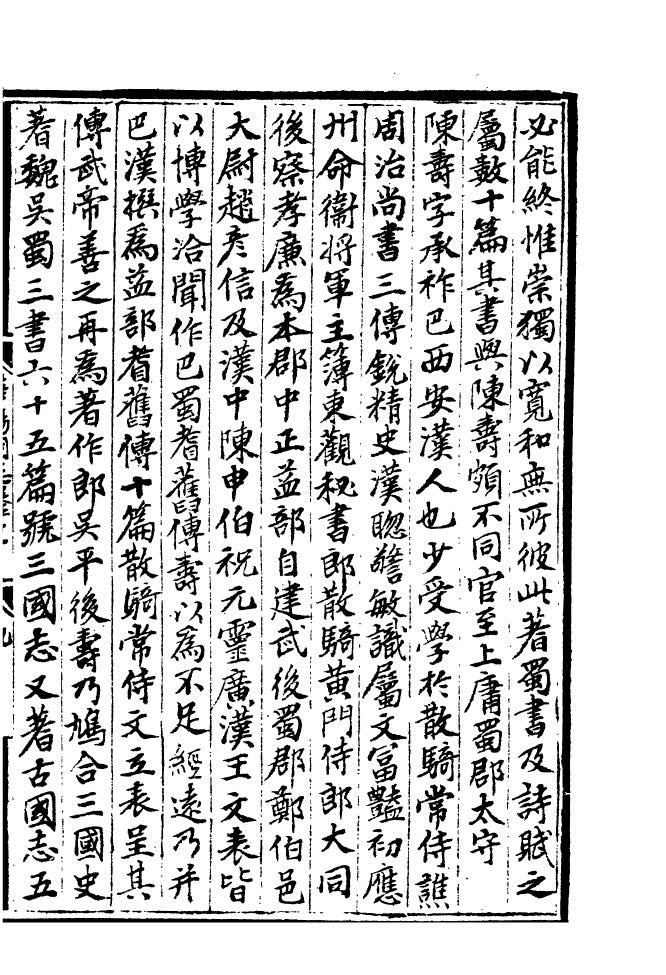 必能終惟崇獨以寬和無所彼此著蜀書及詩賦之
屬數十篇其書與陳壽頗不同官至上庸蜀郡太守
陳壽字承祚巴西安漢人也少受學於散騎常侍譙
周治尚書三傳銳精史漢聰警敏識屬文富艷初應
州命衞將軍主簿東觀秘書郎散騎黄門侍郎大同
後察孝廉為本郡中正益部自建武後蜀郡鄭伯邑
大尉趙彦信及漢中陳申伯祝元靈廣漢王文表皆
以博學洽聞作巴蜀耆舊傳壽以為不足經遠乃并
巴漢撰為益部耆舊傳十篇散騎常侍文立表呈其
傳武帝善之再為著作郎吳平後壽乃鳩合三國史
著魏吳蜀三書六十五篇號三國志又著古國志五